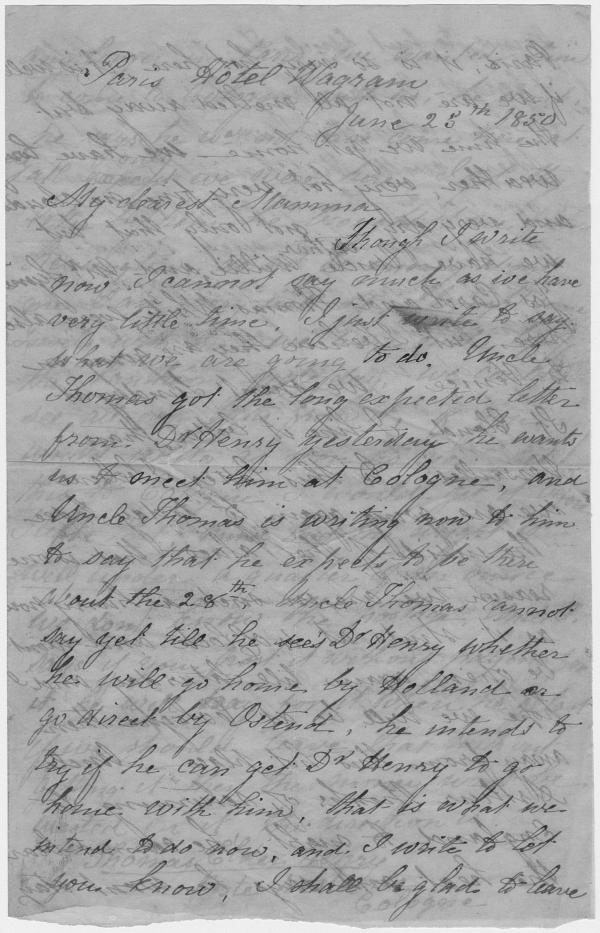 Paris Hotel Wagram
June 23th 1850
My dearest Mamma
Though I write
now I cannot say much as we have
very little time. I just write to say
what we are going to do. Uncle
Thomas got the long expected letter
from Dr Henry yesterday he wants
us to meet him at Cologne, and
Uncle Thomas is writing now to him
to say that he expects to be there
about the 28th Uncle Thomas cannot
say yet till he sees Dr Henry whether
he will go home by Holland or
go direct by Ostend, he intends to
try if he can get Dr Henry to go
home with him, that is what we
intend to do now, and I write to let
you know, I shall be glad to leave